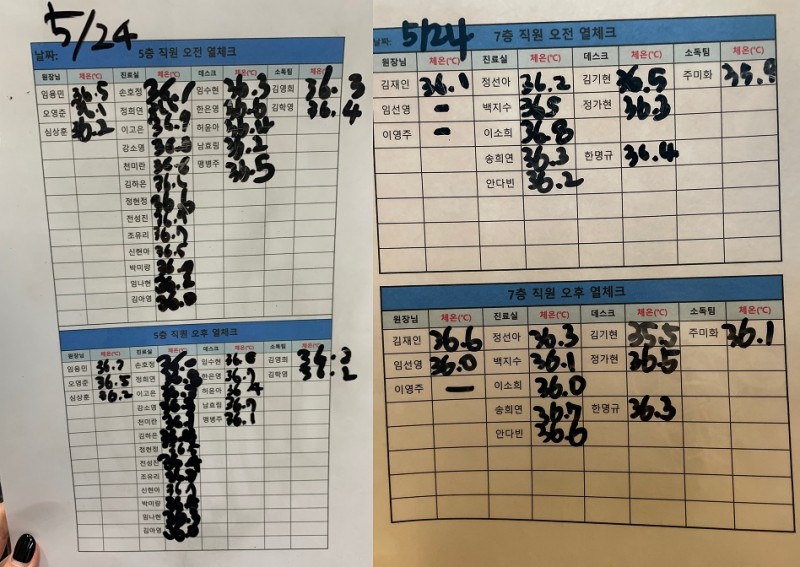 날짜: 5/24 5층 직원 오전 열체크
원장님 체온(℃) 진료실 체온(℃) 데스크 체온(℃) 소독팀 체온(℃)
임용민 36.5 손호정 임수현 36.3 김영희 36.3
오영준 정희연 한은영 36.6 김학영 36.4
심상훈 36.2 이고은 허윤아
강소영 남효림 36.2
천미란 36.6 명병주 36.5
김하은
정현정
전성진
조유리
신현아
박미랑
임나현
김아영 36.0
5층 직원 오후 열체크
원장님 체온(℃) 진료실 체온(℃) 데스크 체온(℃) 소독팀 체온(℃)
임용민 36.7 손호정 임수현 36.8 김영희
오영준 36.5 정희연 한은영 36.7 김학영
심상훈 36.2 이고은 허윤아
강소영 남효림 36.7
천미란 명병주 36.1
김하은
정현정
전성진
조유리
신현아
박미랑
임나현
김아영
날짜: 5/24 7층 직원 오전 열체크
원장님 체온(℃) 진료실 체온(℃) 데스크 체온(℃) 소독팀 체온(℃)
김재인 36.1 정선아 36.2 김기현 36.5 주미화
임선영 - 백지수 36.5 정가현 36.3
이영주 - 이소희 36.8
송희연 36.3 한명규 36.4
안다빈 36.2
7층 직원 오후 열체크
원장님 체온(℃) 진료실 체온(℃) 데스크 체온(℃) 소독팀 체온(℃)
김재인 36.6 정선아 36.3 김기현 35.5 주미화 36.1
임선영 36.0 백지수 36.1 정가현 36.5
이영주 - 이소희 36.0
송희연 36.7 한명규 36.3
안다빈 36.6